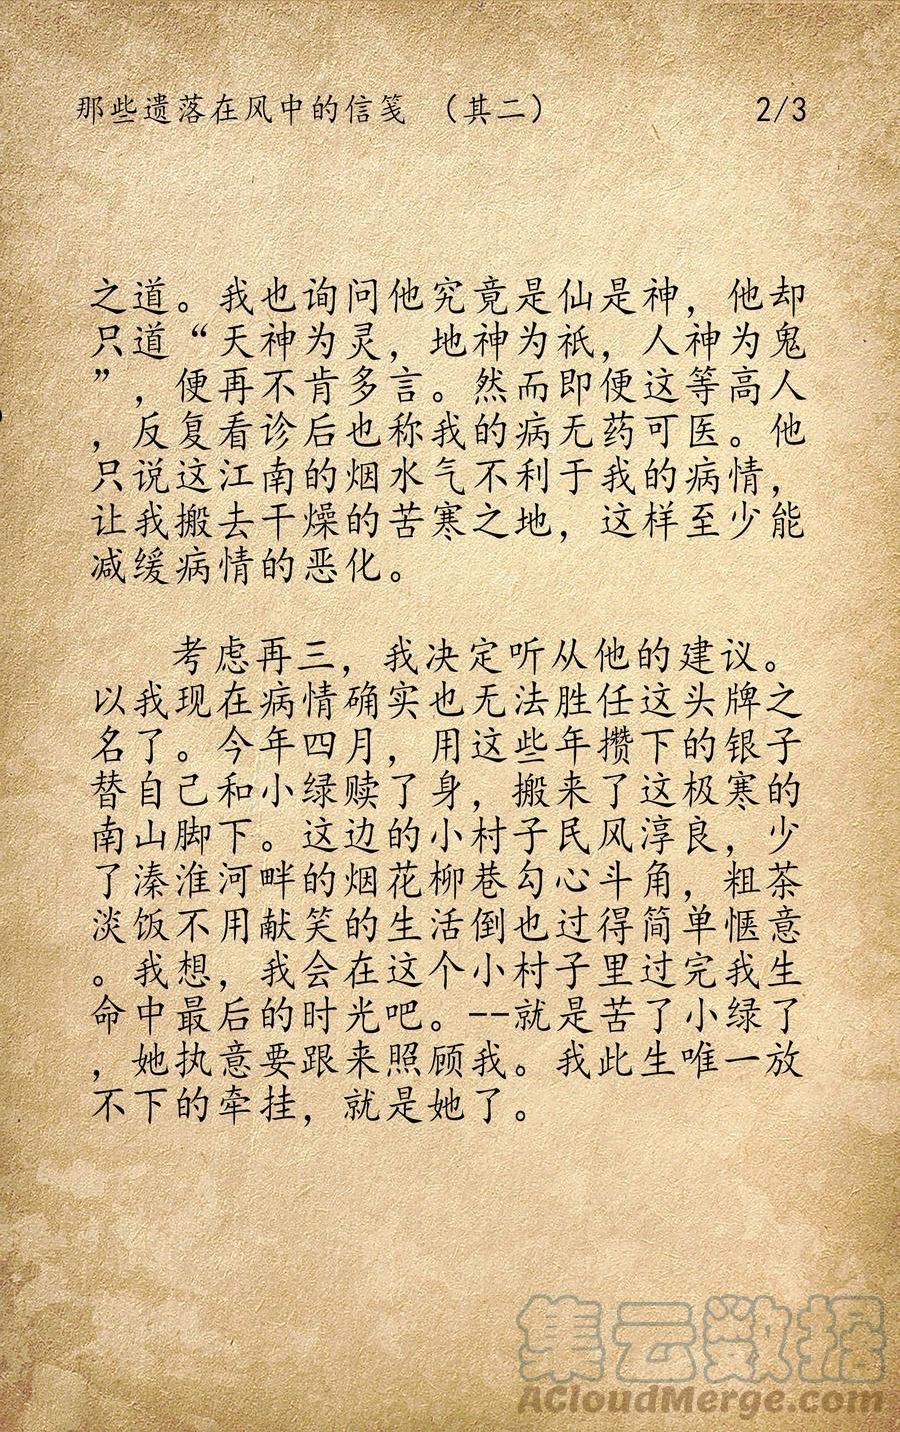 那些遗落在风中的信笺 （其二） 2/3
之道。我也询问他究竟是仙是神，他却
只道“天神为灵，地神为祇，人神为鬼
”，便再不肯多言。然而即便这等高人
，反复看诊后也称我的病无药可医。他
只说这江南的烟水气不利于我的病情，
让我搬去干燥的苦寒之地，这样至少能
减缓病情的恶化。
考虑再三，我决定听从他的建议。
以我现在病情确实也无法胜任这头牌之
名了。今年四月，用这些年攒下的银子
替自己和小绿赎了身，搬来了这极寒的
南山脚下。这边的小村子民风淳良，少
了溱淮河畔的烟花柳巷勾心斗角，粗茶
淡饭不用献笑的生活倒也过得简单惬意
。我想，我会在这个小村子里过完我生
命中最后的时光吧。--就是苦了小绿了
，她执意要跟来照顾我。我此生唯一放
不下的牵挂，就是她了。
集云数据
ACloudMerge.com